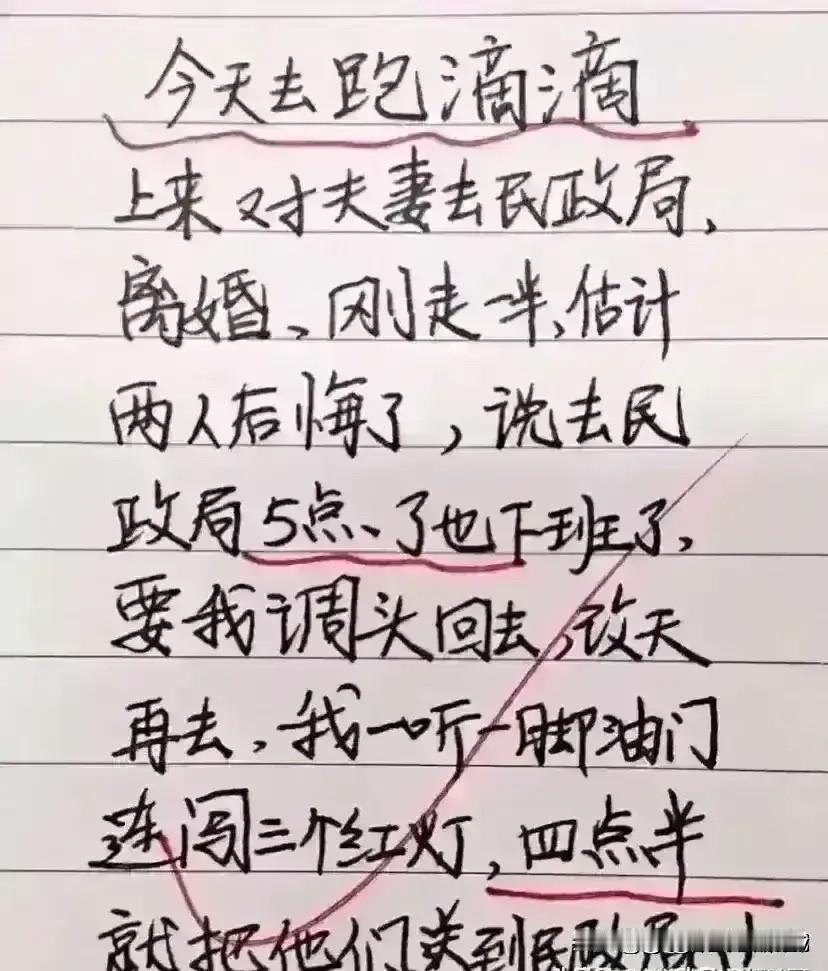 今天去跑滴滴
上来对夫妻去民政局,
离婚、刚走一半、估计
两人后悔了,说去民
政局5点、了也下班了,
要我调头回去,改天
再去,我一听一脚油门
连闯三个红灯,四点半
就把他们送到民政局门